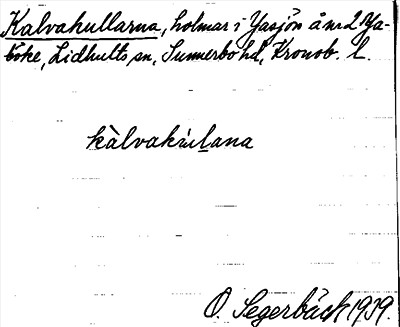 Kalvakullarna, holmar i Yasjön å nr 2 Ya-
böke, Lidhults sn, Sunnerbo hd, Kronob. l.
kàlvakulana
O. Segerbäck 1939.